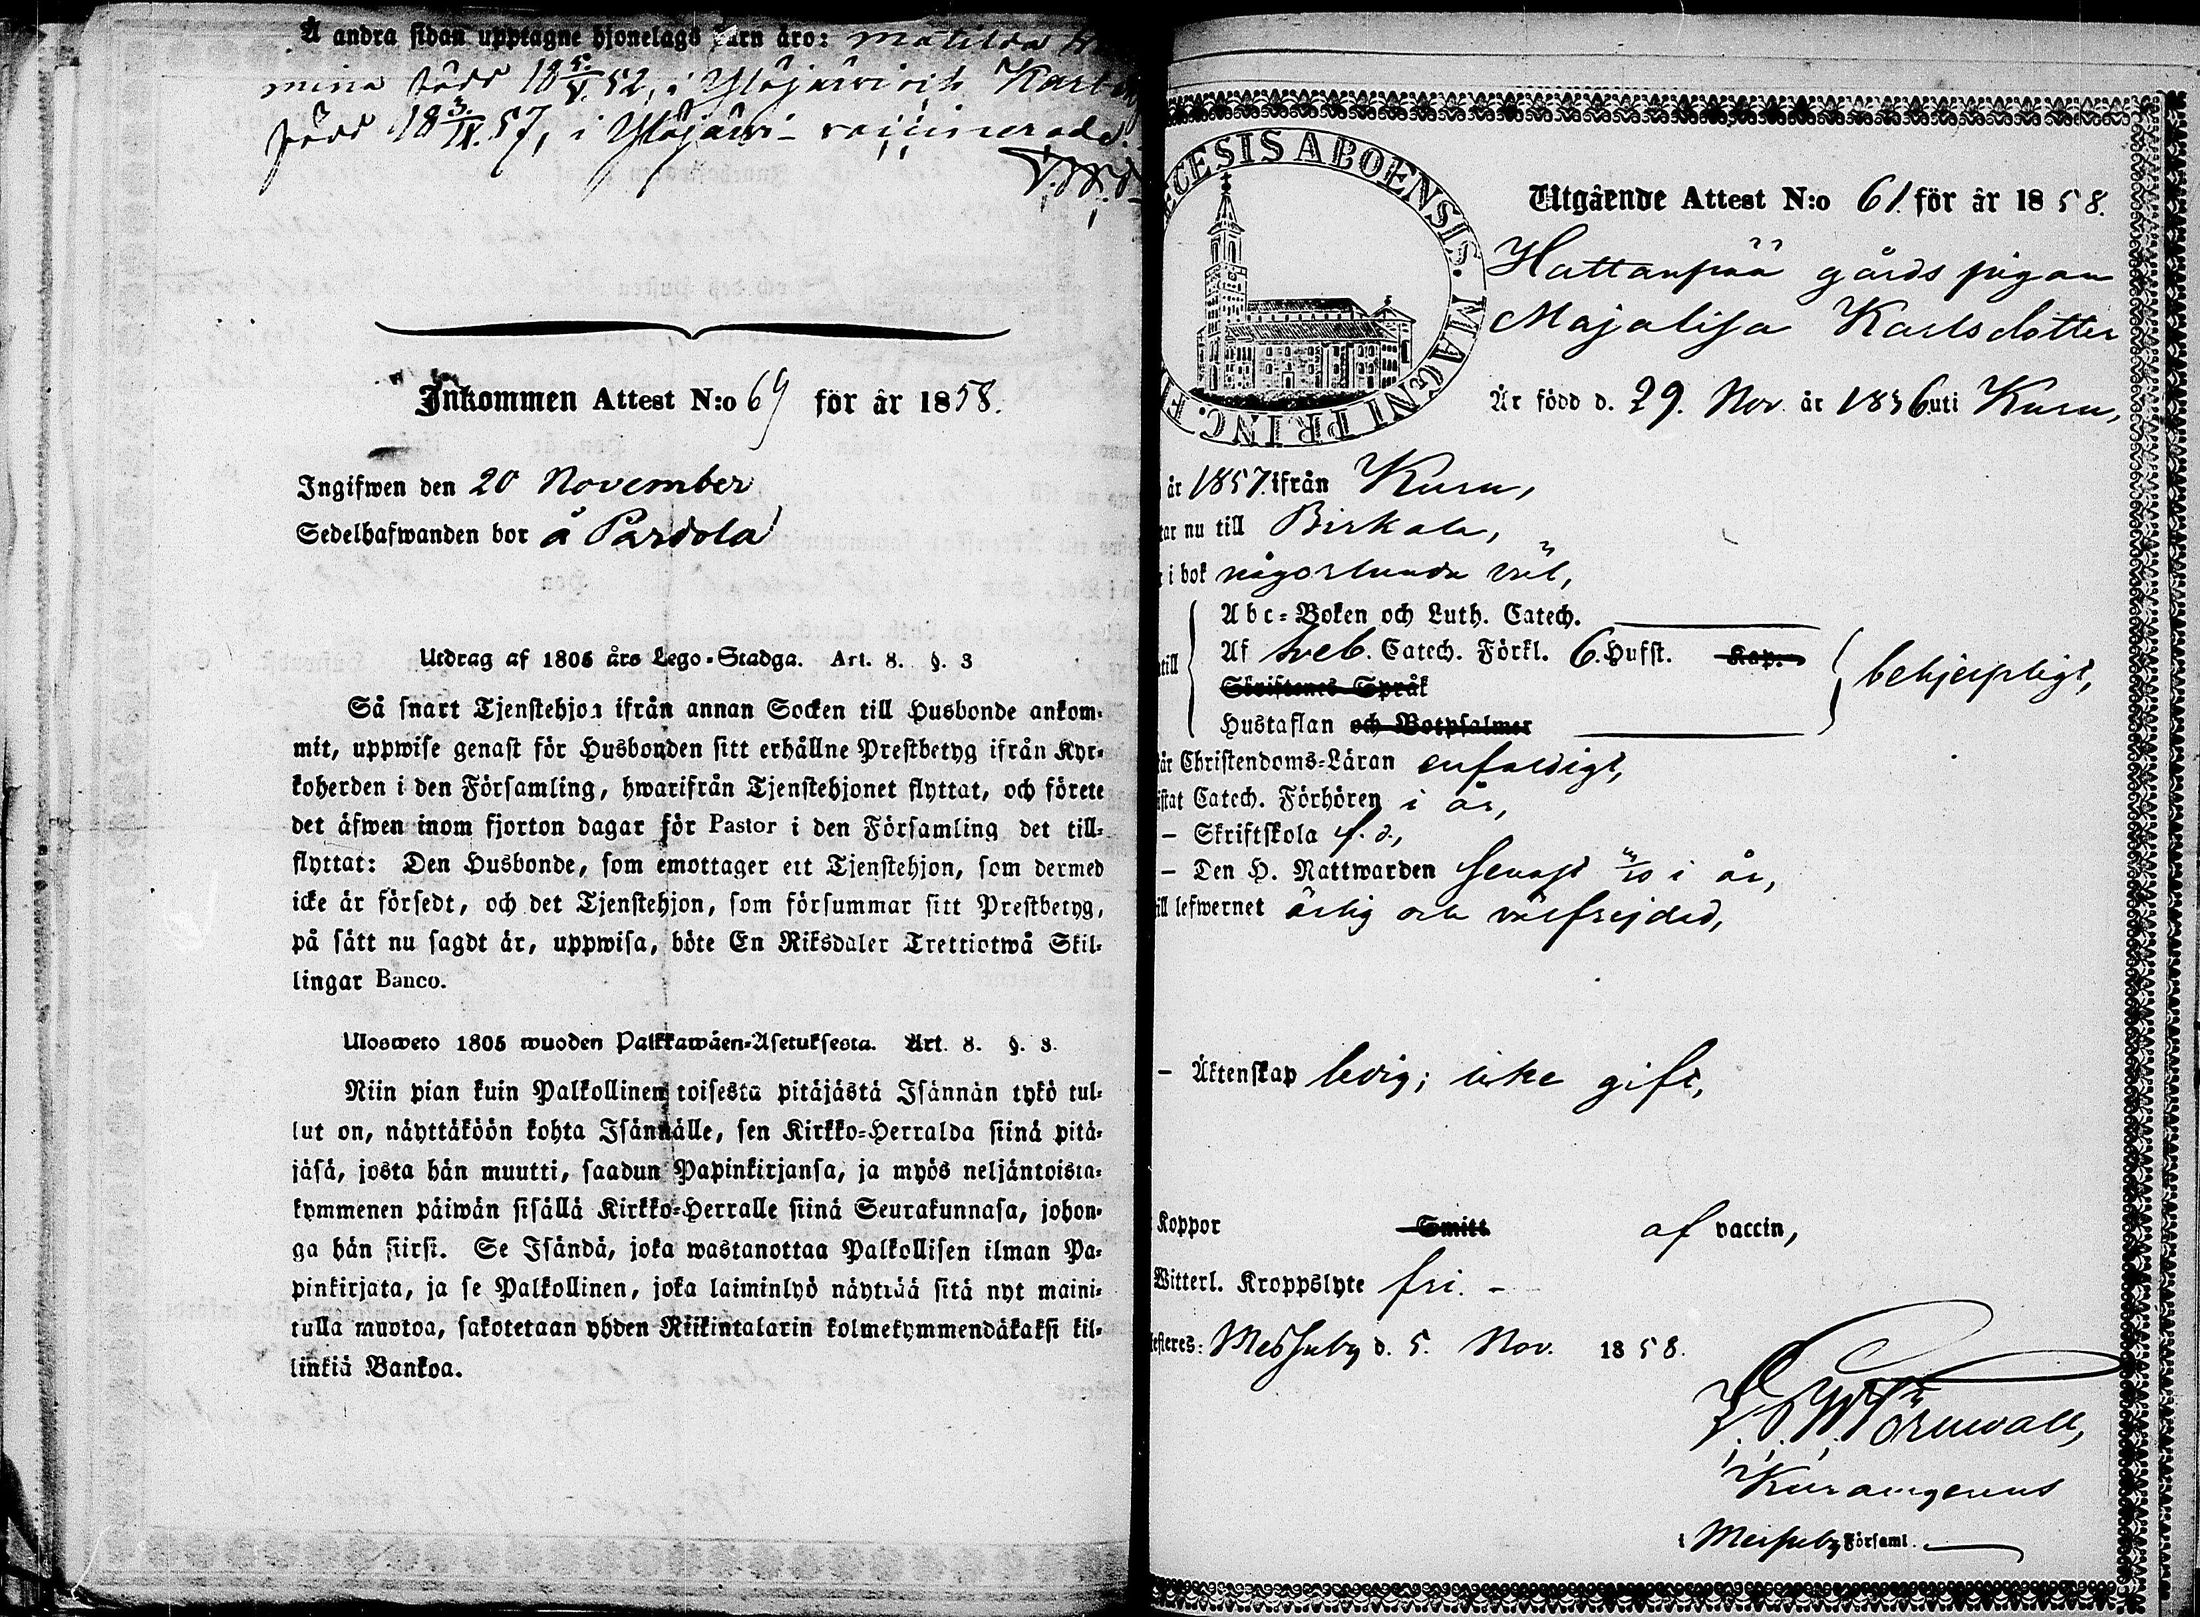 Å andra sidan upptagne hjonelags barn äro: Matilda
mina född 18 5/V. 52, i Ylöjärvi och Karl
född 18 3/IX. 57, i Ylöjärvi – vaccinerade.
Inkommen Attest N:o 69 för år 1858.
Ingifwen den 20 November
Sedelhafwanden bor å Pardola
Utdrag af 1805 års Lego-Stadga. Art. 8. §. 3
Så snart Tjenstehjon ifrån annan Socken till Husbonde ankom-
mit, uppwise genast för Husbonden sitt erhållne Prestbetyg ifrån Kyr-
koherden i den Församling, hwarifrån Tjenstehjonet flyttat, och förete
det äfwen inom fjorton dagar för Pastor i den Församling det till-
flyttat: Den Husbonde, som emottager ett Tjenstehjon, som dermed
icke är försedt, och det Tjenstehjon, som försummar sitt Prestbetyg,
på sätt nu sagdt är, uppwisa, böte En Riksdaler Trettiotwå Skil-
lingar Banco.
Ulosweto 1805 wuoden Palkkawäen-Asetuksesta. Art. 8. §. 3.
Niin pian kuin Palkollinen toisesta pitäjästä Isännän tykö tul-
lut on, näyttäköön kohta Isännälle, sen Kirkko-Herralda siinä pitä-
jäsä, josta hän muutti, saadun Papinkirjansa, ja myös neljäntoista-
kymmenen päiwän sisällä Kirkko-Herralle siinä Seurakunnasa, johon-
ga hän siirsi. Se Isändä, joka wastanottaa Palkollisen ilman Pa-
pinkirjata, ja se Palkollinen, joka laiminlyö näyttää sitä nyt maini-
tulla muotoa, sakotetaan yhden Riikintalarin kolmekymmendäkaksi kil-
linkiä Bankoa.
ECESIS ABOENSIS. MAGNI PRINC. F
Utgående Attest N:o 61. för år 1858.
Hattanpää gårds pigan
Majalisa Karlsdotter
Är född d. 29. Nov. år 1836 uti Kuru,
år 1857. ifrån Kuru,
tar nu till Birkala,
i bok någorlunda väl,
Abc-Boken och Luth. Catech.
till Af Sveb. Catech. Förkl. 6. Hufst. Kap. behjelpligt,
Skriftenes Språk
Hustaflan och Botpsalmer
är Christendoms-Läran enfaldigt,
istat Catech. Förhören i år,
– Skriftskola f. d.,
– Den H. Nattwarden senast i år,
ill lefwernet ärlig och välfrejdad,
– Äktenskap ledig; icke gift,
Koppor Smitt af vaccin,
Witterl. Kroppslyte fri. –
testeres: Messuby d. 5. Nov. 1858.
Törnwall,
i Messuby Församl.